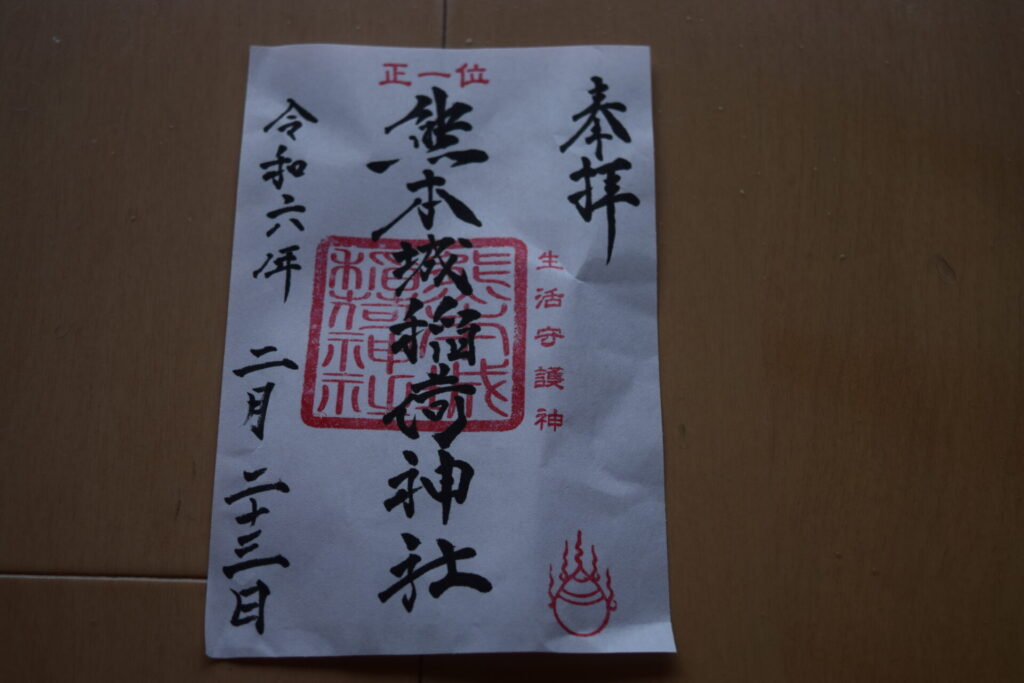 奉拝
生活守護神
正一位
熊本城稲荷神社
熊本城
稲荷神社
令和六年 二月 二十三日